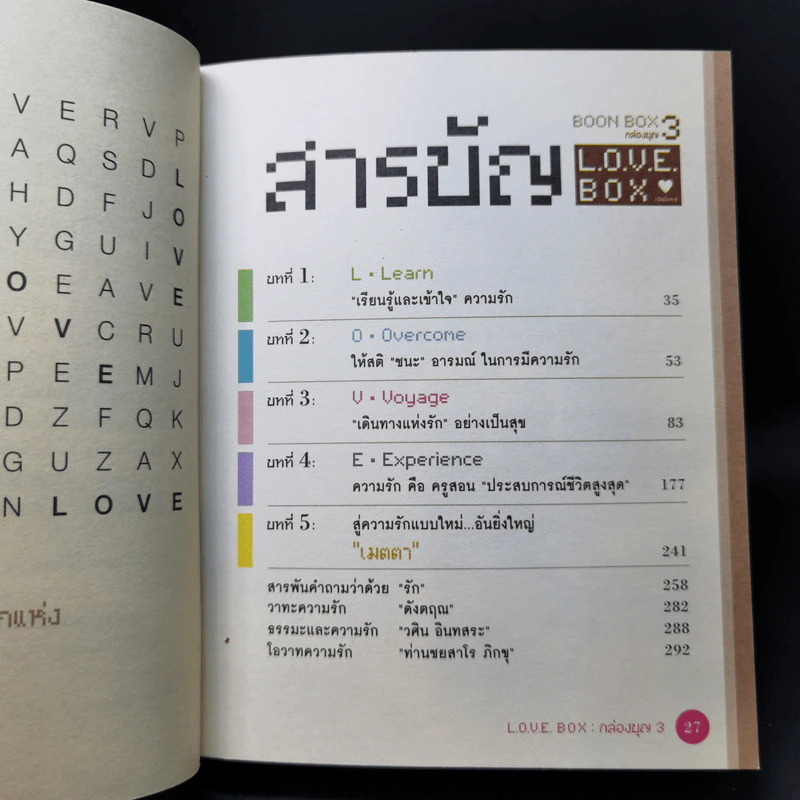 V E R V P
A Q S D L
H D F J O
Y G U I V
O E A V E
V V C R U
P E E M J
D Z F Q K
G U Z A X
N L O V E
กแห่ง
สารบัญ
BOON BOX 3
กล่องบุญ
L.O.V.E.
BOX
บทที่ 1: L • Learn
"เรียนรู้และเข้าใจ" ความรัก 35
บทที่ 2: O • Overcome
ให้สติ "ชนะ" อารมณ์ ในการมีความรัก 53
บทที่ 3: V • Voyage
"เดินทางแห่งรัก" อย่างเป็นสุข 83
บทที่ 4: E • Experience
ความรัก คือ ครูสอน "ประสบการณ์ชีวิตสูงสุด" 177
บทที่ 5: สู่ความรักแบบใหม่...อันยิ่งใหญ่
"เมตตา" 241
สารพันคำถามว่าด้วย "รัก" 258
วาทะความรัก "ดังตฤณ" 282
ธรรมะและความรัก "วศิน อินทสระ" 288
โอวาทความรัก "ท่านชยสาโร ภิกขุ" 292
L.O.V.E. BOX : กล่องบุญ 3 27